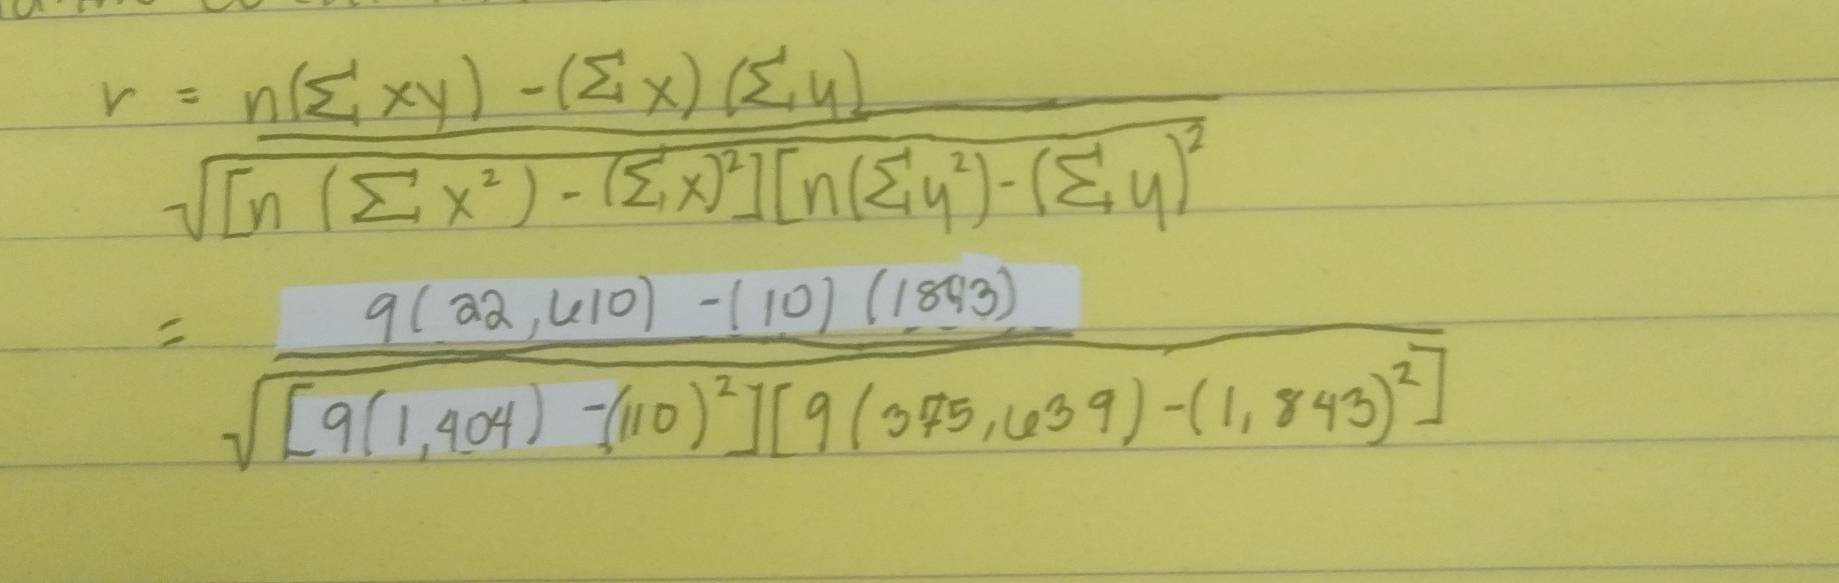 r = n(Σ xy) - (Σ x) (Σ y)
√[n (Σ x²) - (Σ x)²][n(Σ y²) - (Σ y)²
= 9(22,610) - (10) (1843)
√[9(1,404) - (110)²][9(375,639) - (1,843)²]